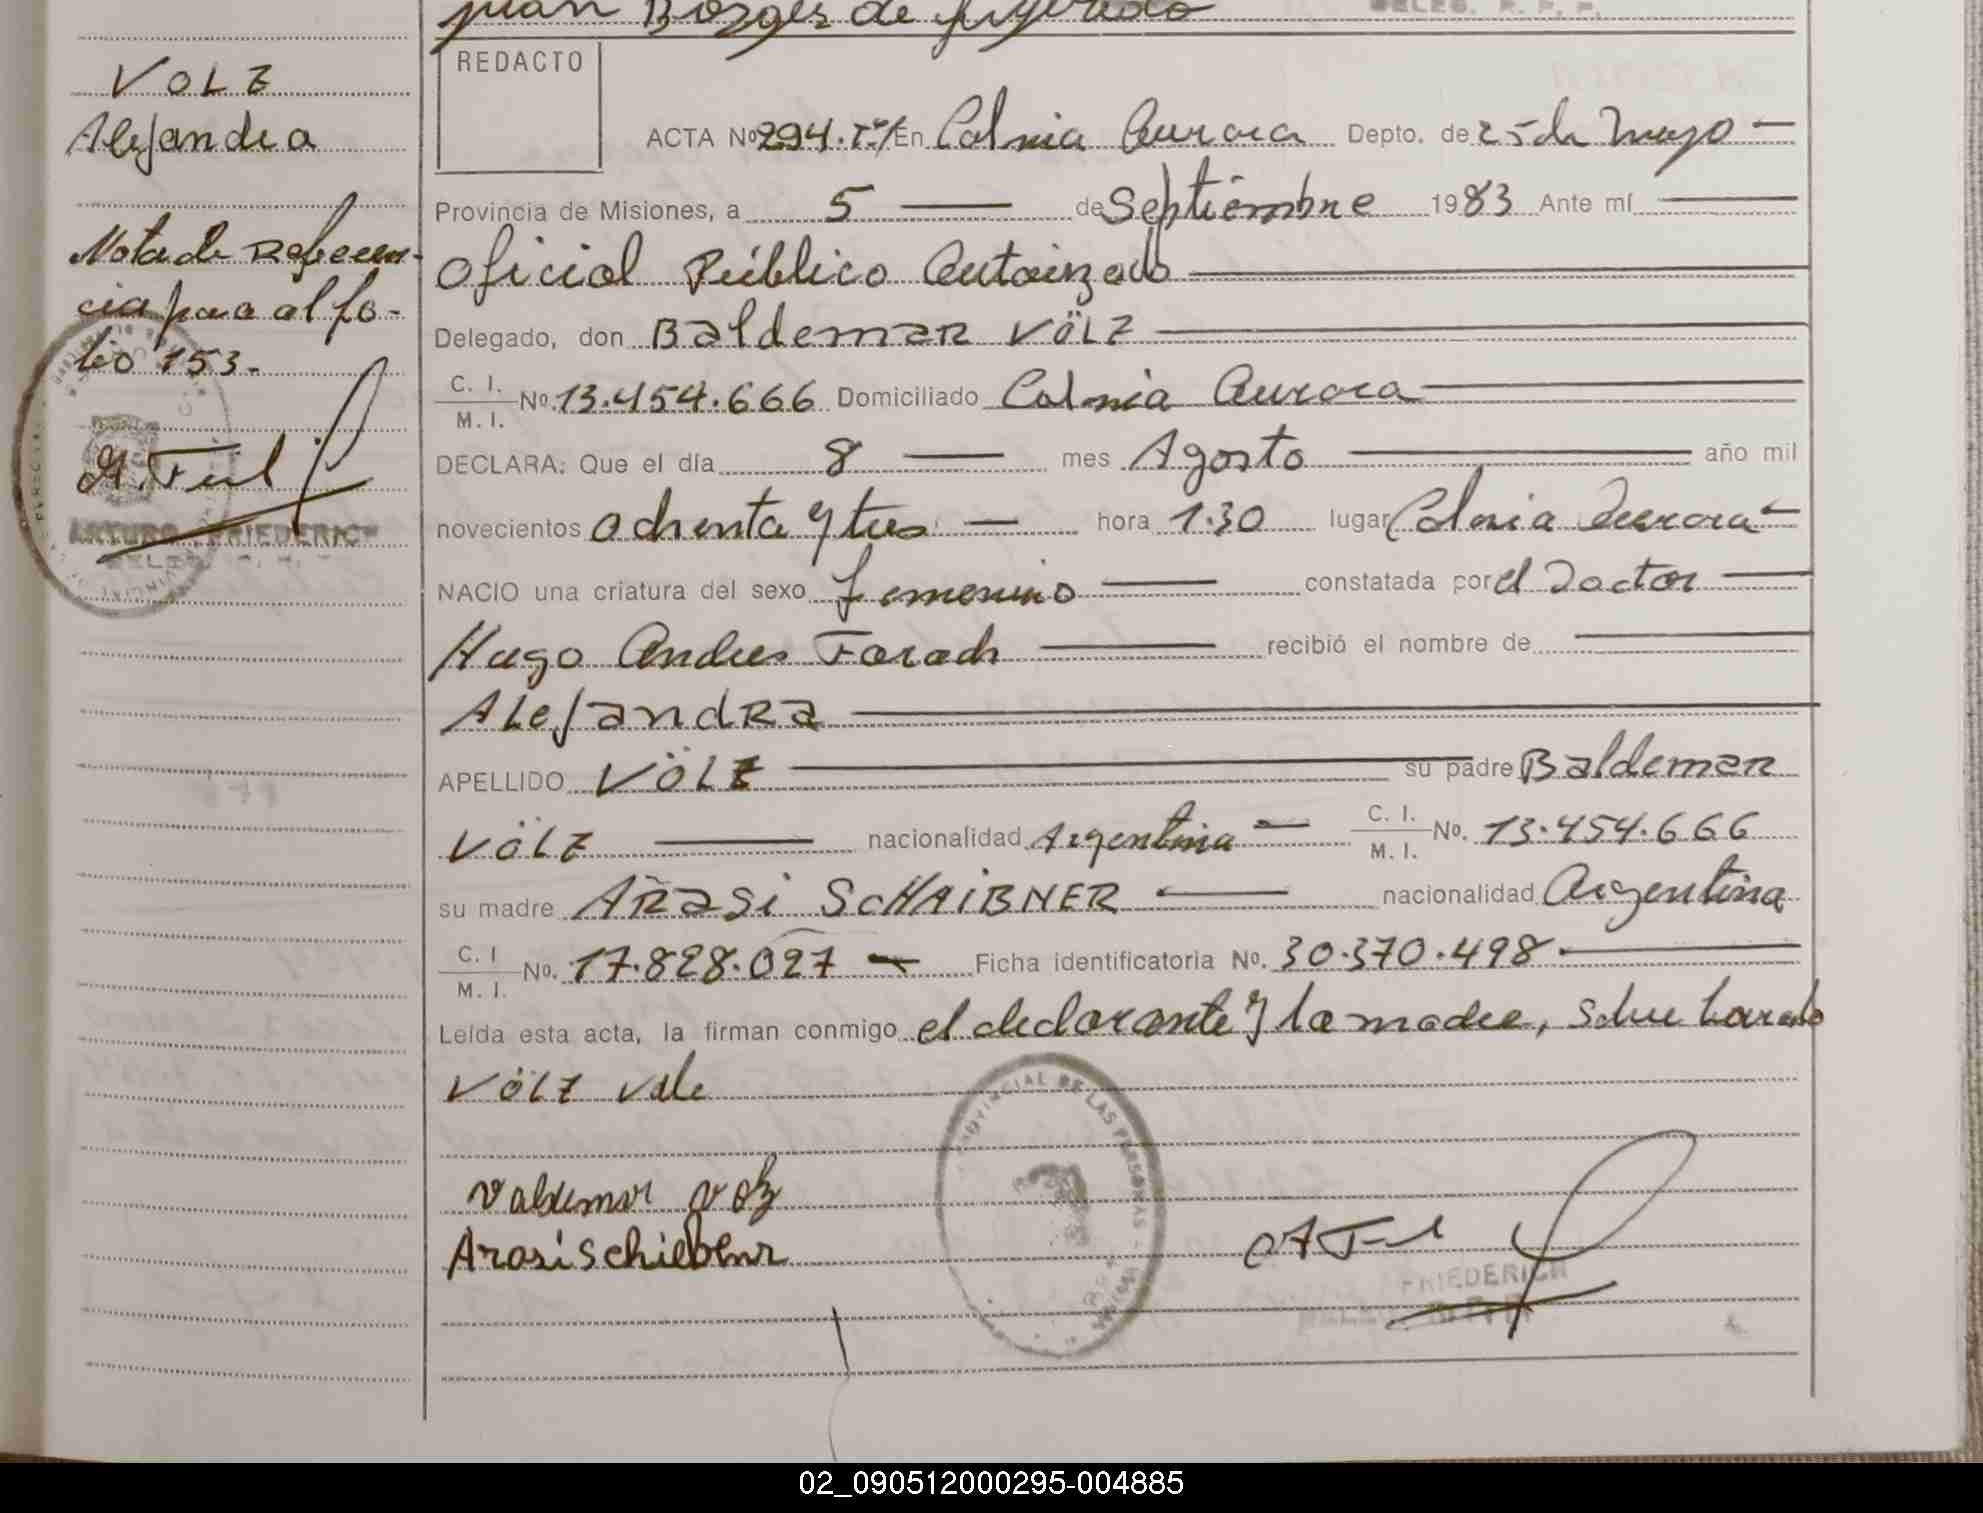 Juan Borges de Figueredo
DELEG. R. P. P.
VOLZ
Alejandra
Nota de Referen-
cia para al fo-
lio 153.-
ARTURO FRIEDERICH
DELEG. R. P. P.
REDACTO
ACTA Nº 294.Tº I En Colonia Aurora Depto. de 25 de Mayo —
Provincia de Misiones, a 5 — de Septiembre 1983 Ante mí —
Oficial Público Autorizado —
Delegado, don Baldemar VÖLZ —
C. I.
M. I. Nº. 13.454.666 Domiciliado Colonia Aurora —
DECLARA: Que el día 8 — mes Agosto — año mil
novecientos ochenta y tres — hora 1.30 lugar Colonia Aurora —
NACIO una criatura del sexo femenino — constatada por el Doctor —
Hugo Andres Farach — recibió el nombre de —
ALejandRa —
APELLIDO VÖLZ — su padre Baldemar
VÖLZ — nacionalidad Argentina — C. I.
M. I. Nº. 13.454.666
su madre ARasi ScHAiBNER — nacionalidad Argentina
C. I
M. I. Nº. 17.828.027 — Ficha identificatoria Nº. 30.370.498 —
Leída esta acta, la firman conmigo el declarante y la madre, sobre borrado
VÖLZ vale
Valdemar Volz
Arasi Schiebenr
PROVINCIAL DE LAS PERSONAS
FRIEDERICH
DELEG. R. P. P.
02_090512000295-004885